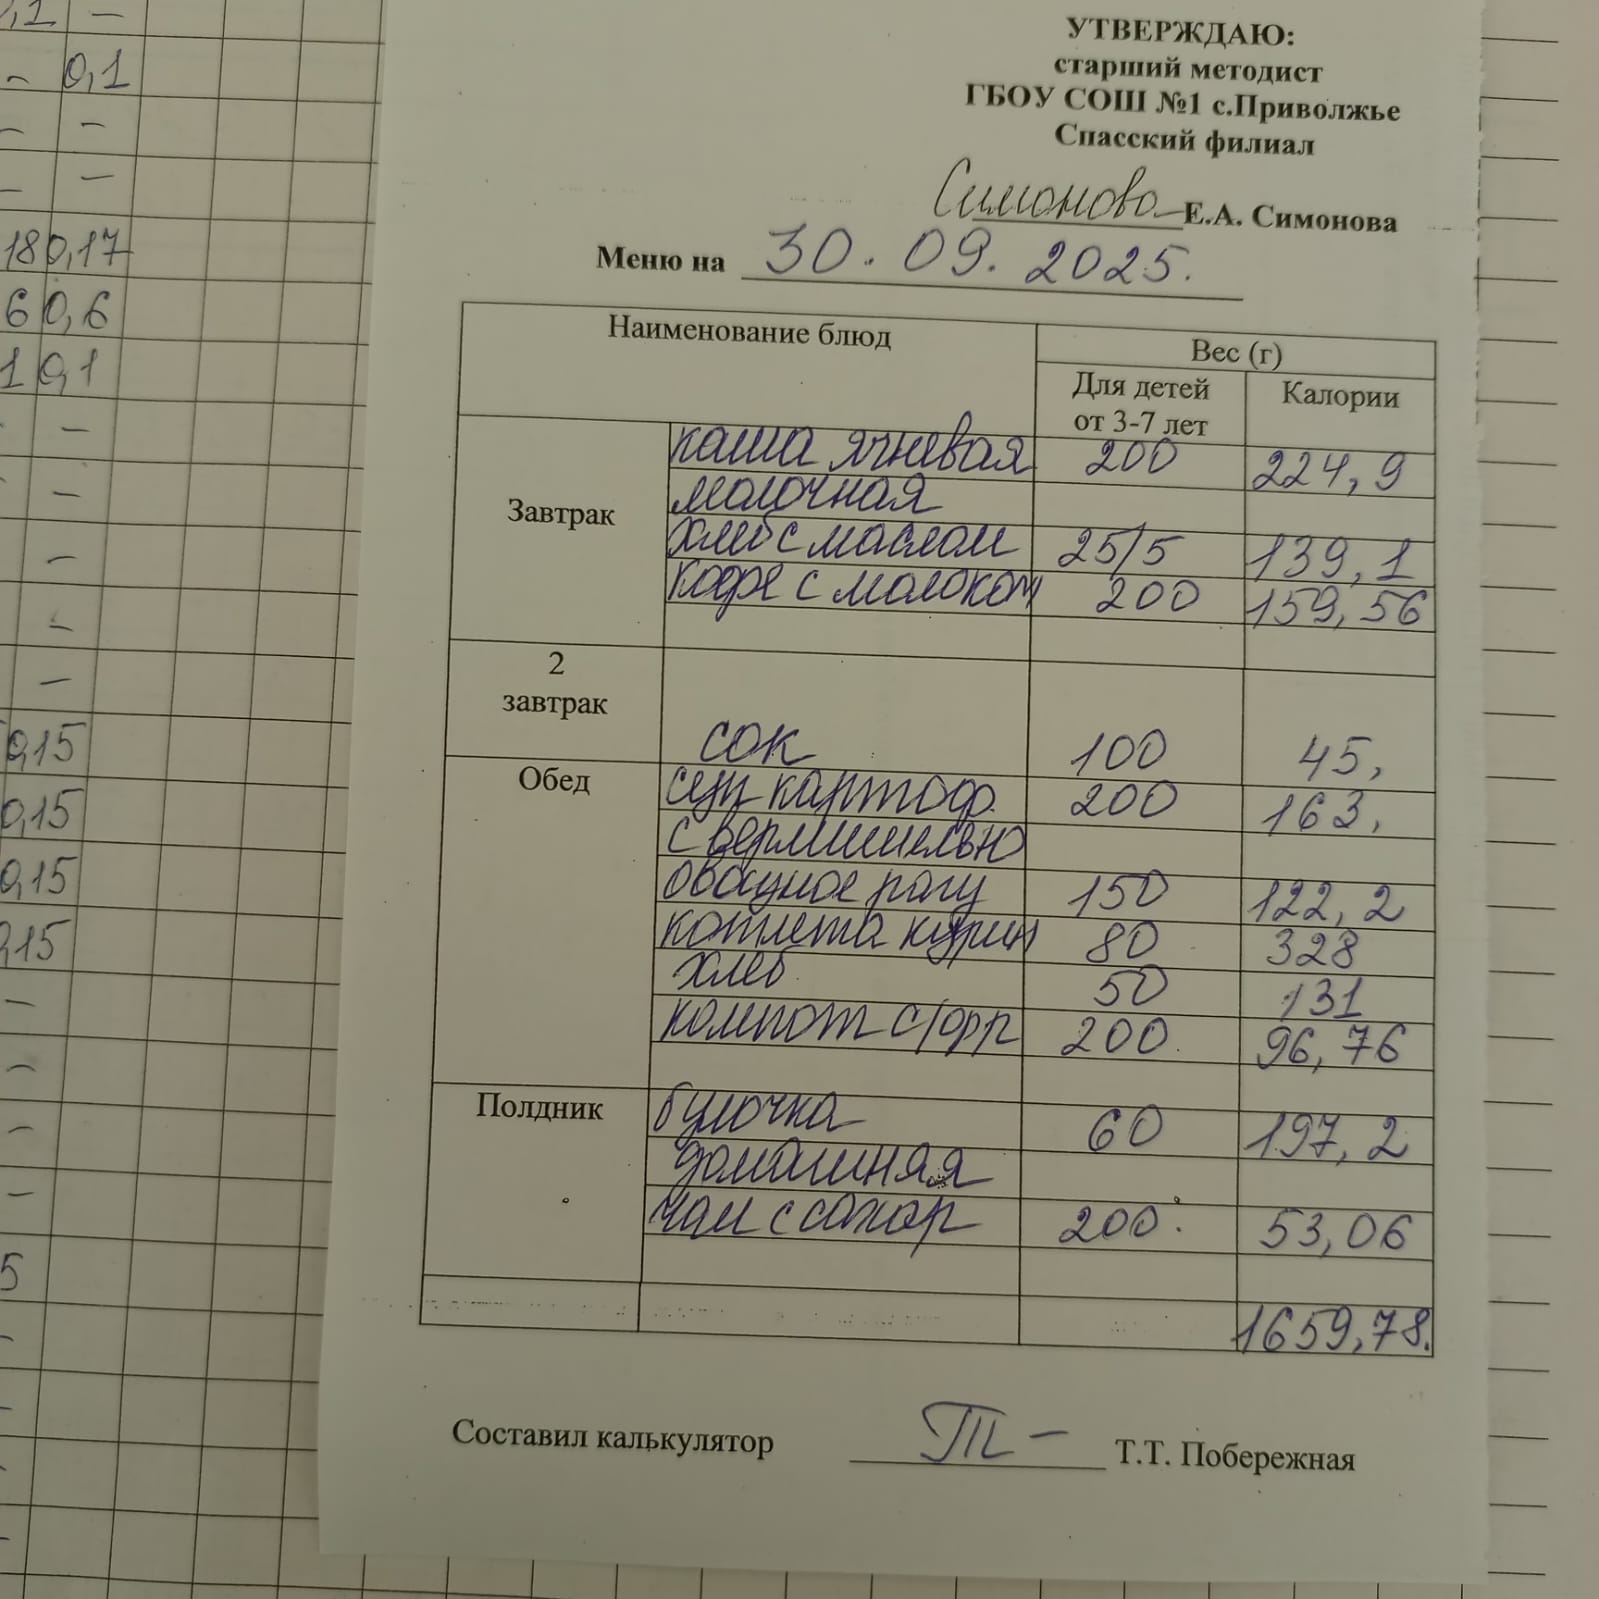 УТВЕРЖДАЮ:
старший методист
ГБОУ СОШ №1 с.Приволжье
Спасский филиал
Симонова Е.А. Симонова
Меню на 30.09.2025.
Наименование блюд Вес (г)
Для детей от 3-7 лет Калории
Завтрак
каша ячневая 200 224,9
молочная
хлеб с маслом 25/5 139,1
кофе с молоком 200 159,56
2 завтрак
сок 100 45,
Обед
суп картоф. 200 163,
с вермишелью
овощное рагу 150 122,2
котлета курин 80 328
хлеб 50 131
компот с/фр 200. 96,76
Полдник
булочка 60 197,2
домашняя
чай с сахар 200. 53,06
1659,78.
Составил калькулятор Т.Т. Побережная
0,1 -
- 0,1
- -
- -
18 0,17
6 0,6
1 0,1
-
-
-
-
-
0,15
0,15
0,15
0,15
-
-
-
-
5
-
-
-
-